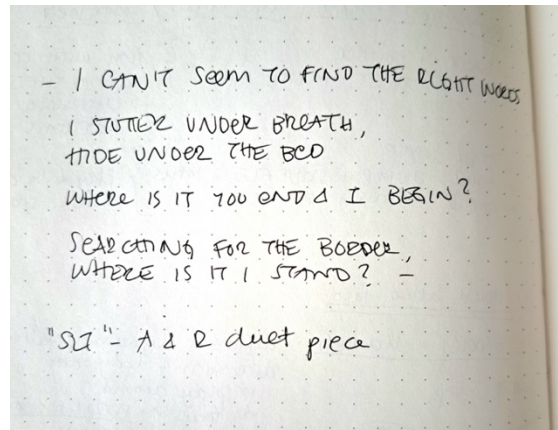 - I CAN'T Seem TO FIND THE RIGHT WORDS
I STUTTER UNDER BREATH,
HIDE UNDER THE BED
WHERE IS IT YOU END & I BEGIN?
SEARCHING FOR THE BORDER,
WHERE IS IT I STAND? -
- A & R duet piece